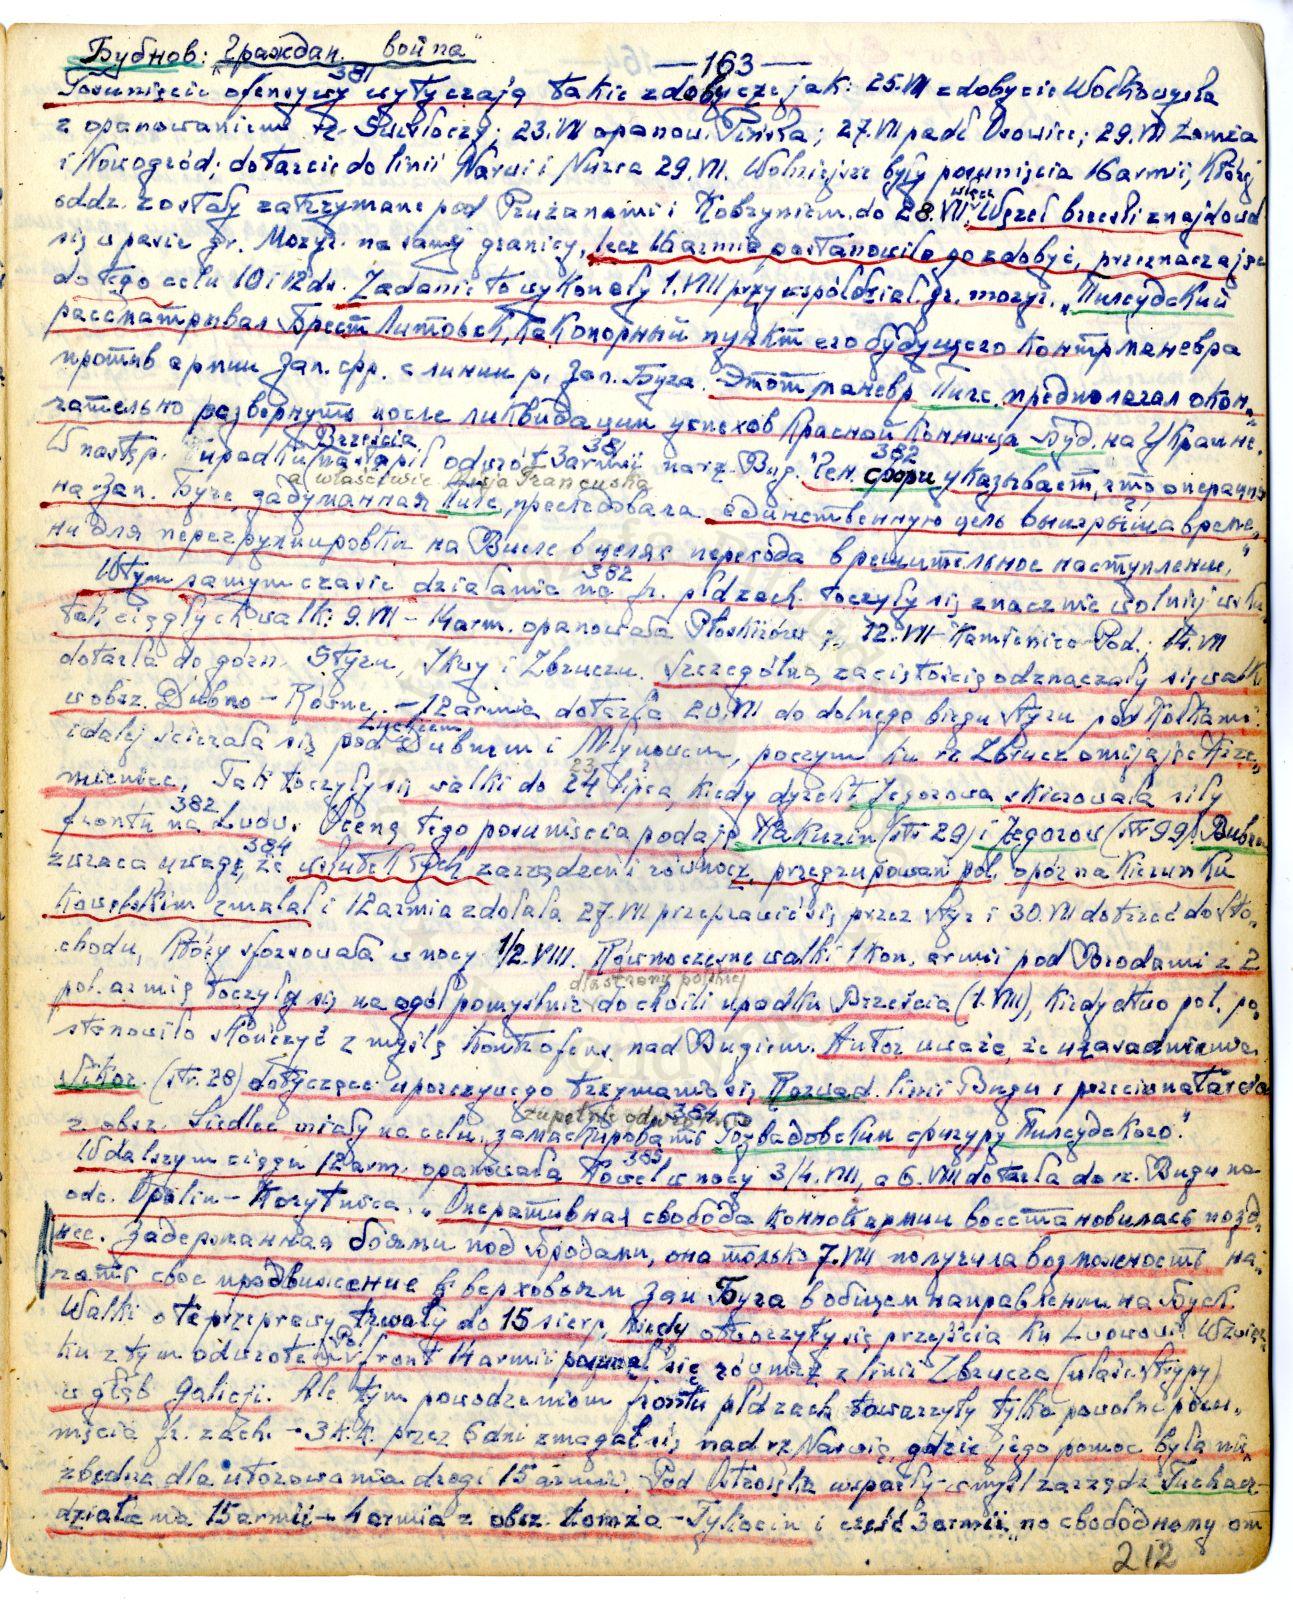 Бубнов: "Граждан. война"
— 163 —
381
Posunięcie ofensywy wytyczają takie zdobycze jak: 25.VII zdobycie Wołkowyska
z opanowaniem rz. Świsłoczy; 23.VII opanow. Pińska; 27.VII padł Osowiec; 29.VII Łomża
i Nowogród; dotarcie do linii Narwi i Nurca 29.VII. Wolniejsze były posunięcia 16 armii, której
oddz. zostały zatrzymane pod Prużanami i Kobryniem do 28.VII. Węzeł brzeski znajdował
się w pasie gr. Mozyr. na samej granicy, lecz 16 armia postanowiła go zdobyć, przeznaczając
do tego celu 10 i 12 dv. Zadanie to wykonały 1.VIII przy współdział. gr. mozyr. "Пилсудский
рассматривал Брест Литовск, как опорный пункт его будущего контрманевра
против армии Зап. фр. с линии р. Зап. Буга. Этот маневр Пилс. предполагал окон„
чательно развернуть после ликвидации успехов Красной Конницы Буд. на Украине.
Brześcia 381 382
W następ. upadku nastąpił odwrót 3 armii na rz. Bug. Ген. Фори указывает, что операция
a właściwie misja Francuska
на Зап. Буге, задуманная Пилс, преследовала единственную цель выигрыша време„
ни для перегруппировки на Висле в целях перехода в решительное наступление."
382
W tym samym czasie działania na fr. płd zach. toczyły się znacznie wolniej wsku
tek ciągłych walk: 9.VII – 14 arm. opanowała Płoskirów, 12.VII – Kamieniec-Pod.; 14.VII
dotarła do górn. Styru, Ikwy i Zbruczu. Szczególną zaciętością odznaczały się walki
w obsz. Dubno – Równe. – 12 armia dotarła 20.VII do dolnego biegu Styru pod Kołkami
Łuckiem
i dalej ścierała się pod Dubnem i Młynowem, poczym ku rz. Zbrucz omijając Krze„
23
mieniec. Tak toczyły się walki do 24 lipca, kiedy dyrekt. Jegorowa skierowała siły
382
frontu na Lwów. Ocenę tego posunięcia podaje Kakurin (str 29) i Jegorow (str 99). Bubnow
384
zwraca uwagę, że wskutek tych zarządzeń i równocz. przegrupowań pol. opór na kierunku
kowelskim zmalał i 12 armia zdołała 27.VII przeprawić się przez Styr i 30.VII dotrzeć do Sto„
chodu, który sforsowała w nocy 1/2.VIII. Równoczesne walki 1 kon. armii pod Brodami z 2
dla strony polskiej
pol. armią toczyły się na ogół pomyślnie do chwili upadku Brześcia (1.VIII), kiedy dtwo pol. po„
stanowiło skończyć z myślą kontrofens. nad Bugiem. Autor uważa, że uzasadnienie
Sikor. (str. 28) dotyczące uporczywego trzymania się Rozwad. linii Bugu i przeciwnatarcia
zupełnie odwrotnie 384
z obsz. Siedlec miały na celu "замаскировать Розвадовским фигуру Пилсудского."
385
W dalszym ciągu 12 arm. opanowała Kowel w nocy 3/4.VIII, a 6.VIII dotarła do rz. Bugu na
odc. Opalin – Korytnica. "Оперативная свобода конной армии восстановилась позд„
нее. Задержанная боями под Бродами, она только 7.VIII получила возможность на„
чать свое продвижение в верховьям Зап Буга в общем направлении на Буск.
Walki o te przeprawy trwały do 15 sierp, kiedy otworzyły się przejścia ku Lwowowi. W związ„
ku z tym odwrotem front 14 armii posunął się również z linii Zbrucza (właśc. Strypy)
w głąb Galicji. Ale tym powodzeniom frontu płd zach. towarzyły tylko powolne posu„
nięcia fr. zach. – 3 k.k. przez 6 dni zmagał się nad rz. Narwią, gdzie jego pomoc była nie„
zbędna dla utorowania drogi 15 armii. Pod Ostrołęką wsparły w myśl zarządz. Tuchacz.
działania 15 armii – 4 armia z obsz. Łomża – Tykocin i część 3 armii "по свободному от
212